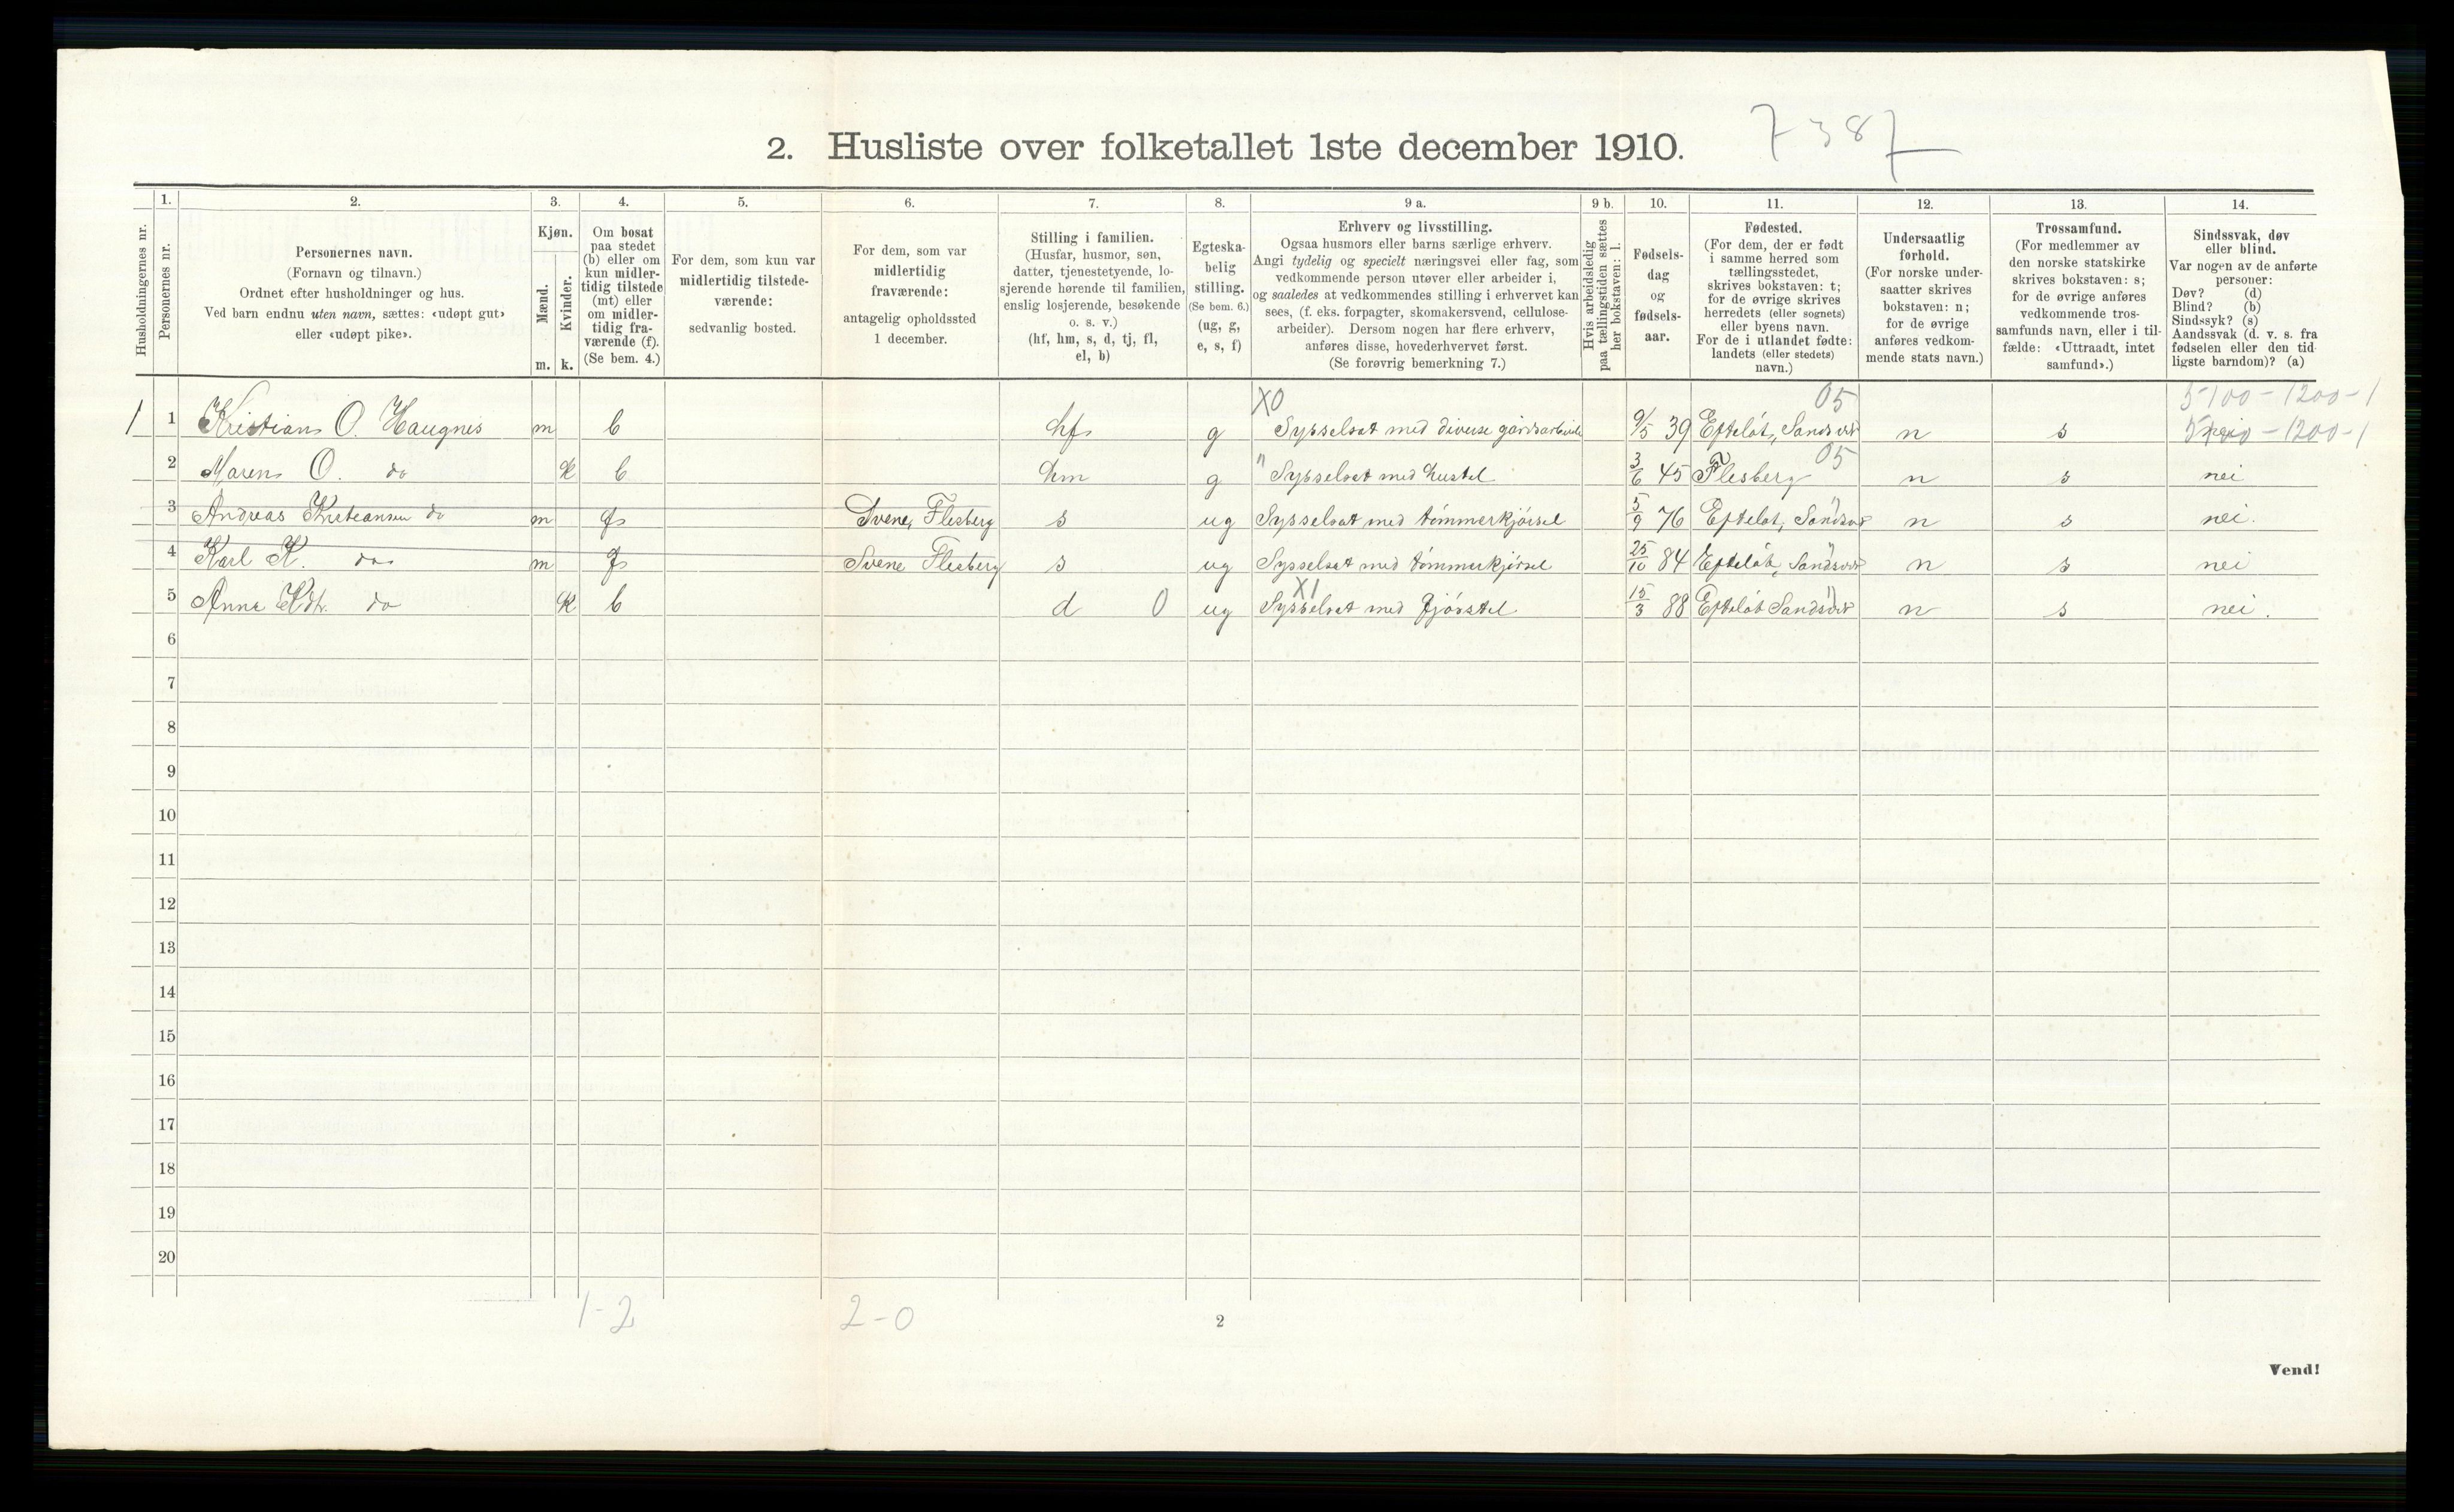 2. Husliste over folketallet 1ste december 1910.
7387
1.
2.
3.
4.
5.
6.
7.
8.
9 a.
9 b.
10.
11.
12.
13.
14.
Husholdningernes nr.
Personernes nr.
Personernes navn.
(Fornavn og tilnavn.)
Ordnet efter husholdninger og hus.
Ved barn endnu uten navn, sættes: «udøpt gut»
eller «udøpt pike».
Kjøn.
Mænd.
Kvinder.
m. k.
Om bosat
paa stedet
(b) eller om
kun midler-
tidig tilstede
(mt) eller
om midler-
tidig fra-
værende (f).
(Se bem. 4.)
For dem, som kun var
midlertidig tilstede-
værende:
sedvanlig bosted.
For dem, som var
midlertidig
fraværende:
antagelig opholdssted
1 december.
Stilling i familien.
(Husfar, husmor, søn,
datter, tjenestetyende, lo-
sjerende hørende til familien,
enslig losjerende, besøkende
o. s. v.)
(hf, hm, s, d, tj, fl,
el, b)
Egteska-
belig
stilling.
(Se bem. 6.)
(ug, g,
e, s, f)
Erhverv og livsstilling.
Ogsaa husmors eller barns særlige erhverv.
Angi tydelig og specielt næringsvei eller fag, som
vedkommende person utøver eller arbeider i,
og saaledes at vedkommendes stilling i erhvervet kan
sees, (f. eks. forpagter, skomakersvend, cellulose-
arbeider). Dersom nogen har flere erhverv,
anføres disse, hovederhvervet først.
(Se forøvrig bemerkning 7.)
Hvis arbeidsledig
paa tællingstiden sættes
her bokstaven: l.
Fødsels-
dag
og
fødsels-
aar.
Fødested.
(For dem, der er født
i samme herred som
tællingsstedet,
skrives bokstaven: t;
for de øvrige skrives
herredets (eller sognets)
eller byens navn.
For de i utlandet fødte:
landets (eller stedets)
navn.)
Undersaatlig
forhold.
(For norske under-
saatter skrives
bokstaven: n;
for de øvrige
anføres vedkom-
mende stats navn.)
Trossamfund.
(For medlemmer av
den norske statskirke
skrives bokstaven: s;
for de øvrige anføres
vedkommende tros-
samfunds navn, eller i til-
fælde: «Uttraadt, intet
samfund».)
Sindssvak, døv
eller blind.
Var nogen av de anførte
personer:
Døv? (d)
Blind? (b)
Sindssyk? (s)
Aandssvak (d. v. s. fra
fødselen eller den tid-
ligste barndom)? (a)
X0 05 5-100-1200-1
1 1 Kristian O. Haugnes m b hf g Sysselsat med diverse gårdsarbeide 9/5 39 Efteløt, Sandsvær n s -1200-1
2 Maren O. do k b hm g " Sysselsat med hustel 3/6 45 Flesberg 05 n s nei
3 Andreas Kristiansen do m f Svene, Flesberg s ug Sysselsat med tømmerkjørsel 5/9 76 Efteløt, Sandsvær n s nei.
4 Karl K. do m f Svene Flesberg s ug Sysselsat med tømmerkjørsel 25/10 84 Efteløt, Sandsvær n s nei
X1
5 Anna Kdtr. do k b d 0 ug Sysselsat med fjøsstel 15/3 88 Efteløt Sandsvær n s nei.
6
7
8
9
10
11
12
13
14
15
16
17
18
19
20
1-2 2-0
2
Vend!